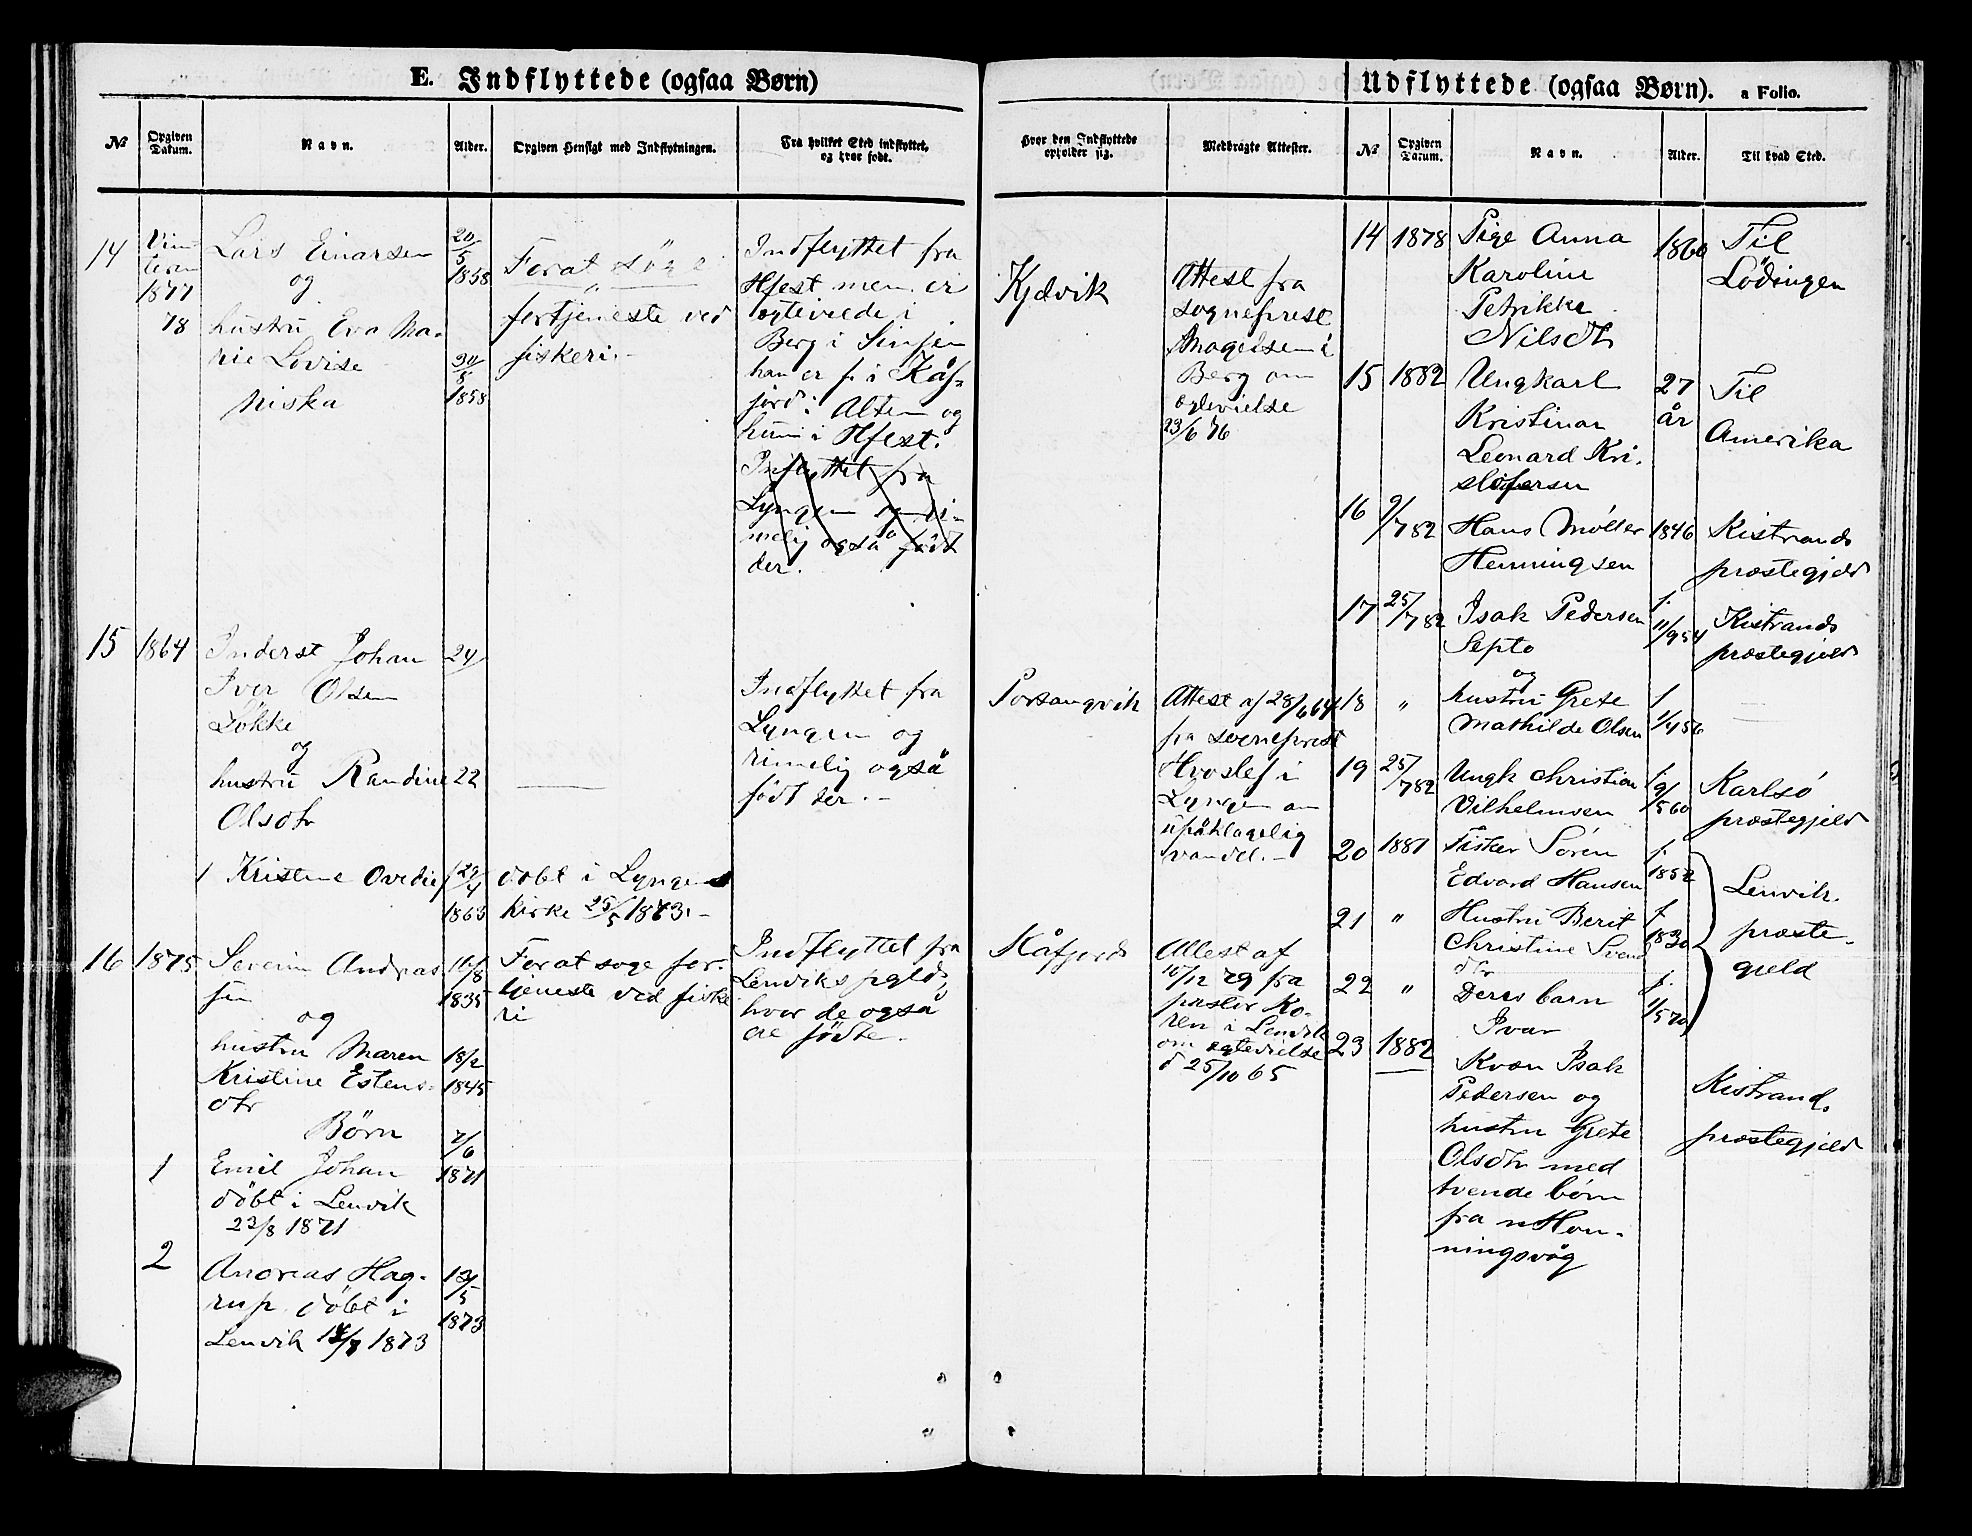 E. Indflyttede (ogsaa Børn)
№
Opgiven Datum.
Navn.
Alder.
Opgiven Hensigt med Indflytningen.
Fra hvilket Sted indflyttet, og hvor født.
14
Vin
teren
1877
78
Lars Einarsen
og
hustru Eva Ma-
rie Lovise
Niska
20/5
1858
30/5
1858
For at söge
fortjeneste ved
fiskeri.-
Indflyttet fra
Hfest men er
ægteviede i
Berg i Sinjen
han er f. i Kåf-
jord i Alten og
hun i Hfest.
Indflyttet fra
Lyngen og ri-
melig også født
der.
15
1864
Inderst Johan
Iver Olsen
Lökke
og
hustru Randine
Olsdtr
24
22
Indflyttet fra
Lyngen og
rimelig også
født der.-
1 Kristine Ovedie
f 29/4
1863
døbt i Lyngens
Kirke 25/5 1863.-
16
1875
Severin Andreas
sen
og
hustru Maren
Kristine Estens-
dtr
Børn
/8
1835
18/2
1845
For at søge for-
tjeneste ved fiske
ri
Indflyttet fra
Lenviks pgld,
hvor de også
ere fødte.
1
Emil Johan
döbt i Lenvik
23/8 1871
7/6
1871
2
Andreas Hag-
rup. döbt i
Lenvik 1/7 1873
/5
1873
Udflyttede (ogsaa Børn). a Folio.
Hvor den Indflyttede opholder sig.
Medbragte Attester.
№
Opgiven Datum.
Navn.
Alder.
Til hvad Sted.
Kjelvik
Attest fra
sogneprest
Magelsen i
Berg om
ægtevielse
23/6 76
Porsangvik
Attest af 28/6 64
fra sogneprest
Hvoslef i
Lyngen om
upåklagelig
vandel.-
Kåfjord
Attest af
16/12 79 fra
pastor Ko-
ren i Lenvik
om ægtevielse
d 25/10 65
14
1878
Pige Anna
Karoline
Petrikke
Nilsdtr
1860
Til
Lödingen
15
1882
Ungkarl
Kristian
Leonard Kri-
stofersen
27
år
Til
Amerika
16
9/7 82
Hans Møller
Henningsen
1846
Kistrands
præstegjeld
17
25/7 82
Isak Pedersen
Septo
og
f.
11/9 54
Kistrands
præstegjeld
18
"
hustru Grete
Mathilde Olsen
f
1/4 56
19
25/7 82
Ungk Christian
Vilhelmsen
f.
9/5 60
Karlsö
præstegjeld
20
1881
Fisker Sören
Edvard Hansen
f.
1852
Lenvik.
præste-
gjeld
21
"
Hustru Berit
Christine Svend
dtr
f.
1830
22
"
Deres barn
Ivar
f.
1/5 70
23
1882
Kvæn Isak
Pedersen og
hustru Grete
Olsdtr med
tvende børn
fra Hon-
ningsvåg
Kistrand.
præstegjeld